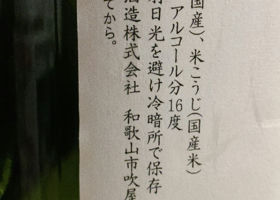 国産)、米こうじ(国産米)
アルコール分16度
射日光を避け冷暗所で保存
酒造株式会社 和歌山市吹屋
てから。